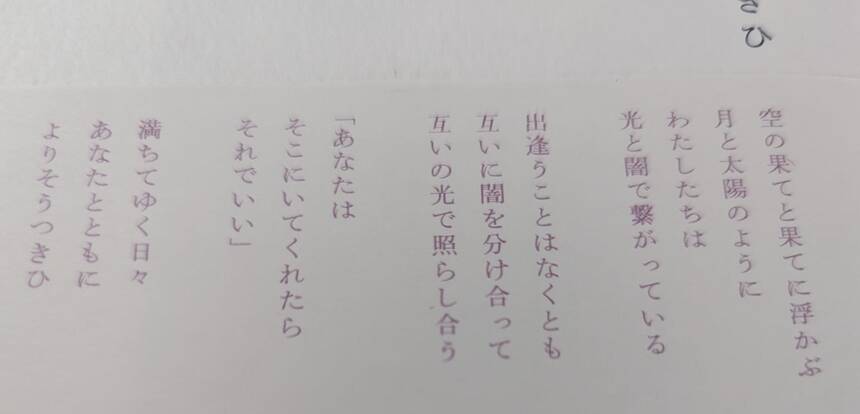 きひ
空の果てと果てに浮かぶ
月と太陽のように
わたしたちは
光と闇で繋がっている
出逢うことはなくとも
互いに闇を分け合って
互いの光で照らし合う
「あなたは
そこにいてくれたら
それでいい」
満ちてゆく日々
あなたとともに
よりそうつきひ